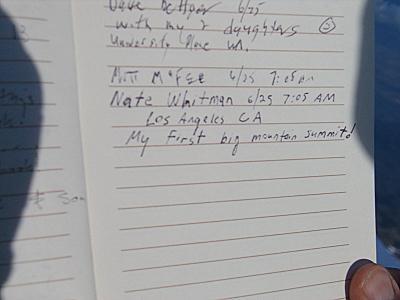 Dave 6/25
with my 2 daughters (5)
University Place WA.
MTT MCFEE 6/25 7:05 AM
Nate Whitman 6/25 7:05 AM
Los Angeles CA
My First big mountain summit!